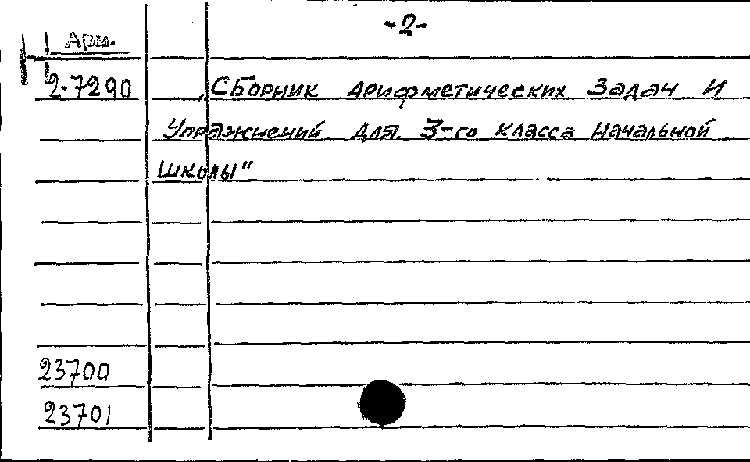 -2-
Арм.
2.7290 „Сборник арифметических задач и
Упражнений для 3-го класса начальной
школы"
23700
23701